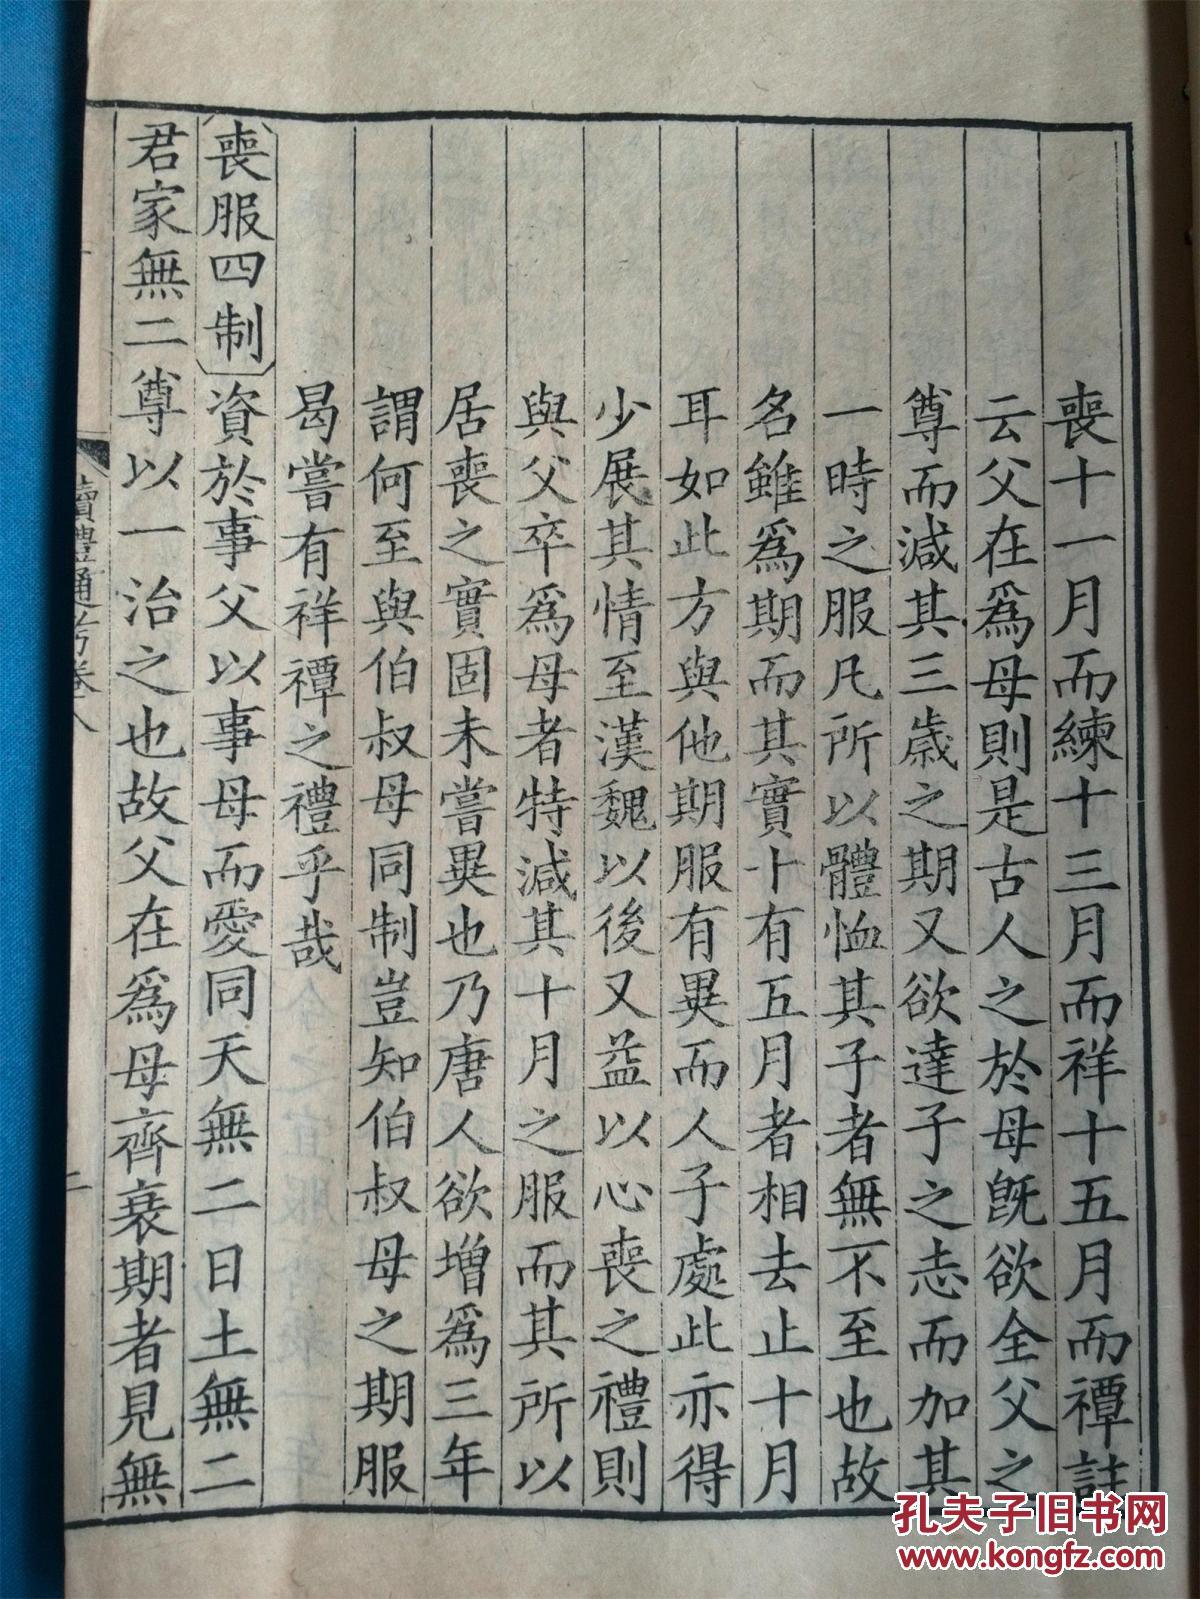 喪十一月而練十三月而祥十五月而禫註
云父在爲母則是古人之於母旣欲全父之
尊而減其三歲之期又欲達子之志而加其
一時之服凡所以體恤其子者無不至也故
名雖爲期而其實十有五月者相去止十月
耳如此方與他期服有異而人子處此亦得
少展其情至漢魏以後又益以心喪之禮則
與父卒爲母者特減其十月之服而其所以
居喪之實固未嘗異也乃唐人欲增爲三年
謂何至與伯叔母同制豈知伯叔母之期服
曷嘗有祥禫之禮乎哉
喪服四制資於事父以事母而愛同天無二日土無二
君家無二尊以一治之也故父在爲母齊衰期者見無
讀禮通考卷八
二
孔夫子旧书网
www.kongfz.com